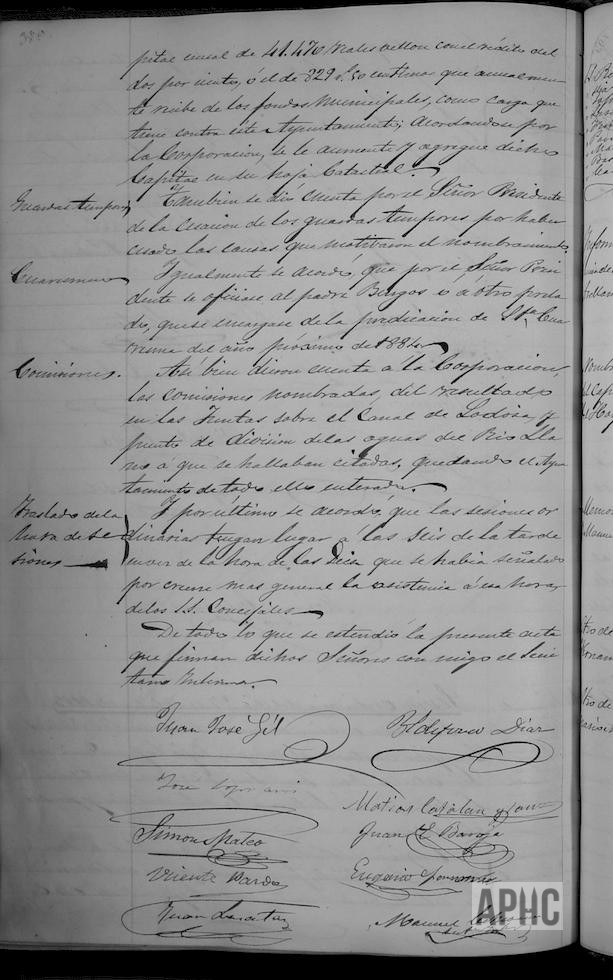 pital censal de 41.470 reales vellon con el rédito del
dos por ciento, ó el de 829 rs. 50 centimos que anualmen
te recibe de los fondos Municipales, como carga que
tiene contra este Ayuntamiento; acordandose por
la Corporacion, se le aumente y agregue dicho
Capital en su hoja Catastral.
Guardas temporos
Tambien se dió cuenta por el Señor Presidente
de la cesacion de los guardas temporos por haber
cesado las causas que motivaron el nombramiento.
Cuaresma
Igualmente se acordó, que por el Señor Presi
dente se oficiase al padre Burgos ó á otro prela
do, que se encargase de la predicacion de Sta Cua
resma del año próximo de 1884
Comisiones.
Asi bien dieron cuenta á la Corporacion,
las comisiones nombradas, del resultado
en las Juntas sobre el Canal de Lodosa, y
puente de division de las aguas del Rio Lla
no a que se hallaban citadas, quedando el Ayun
tamiento de todo ello enterado.
Traslado de la
hora de se
siones
Y por ultimo se acordó, que las sesiones or
dinarias tengan lugar á las seis de la tarde
en vez de la hora de las Diez que se habia señalado
por creerse mas general la asistencia á esa hora,
de los S.S. Concejales
De todo lo que se estendió la presente acta
que firman dichos Señores con migo el Secre
tario Interino.
Juan José Gil
Ildefonso Diaz
José
Matias Catalan
Simon Mateo
Juan Baroja
Vicente Pardo
Eugenio
Juan
Manuel
APHC